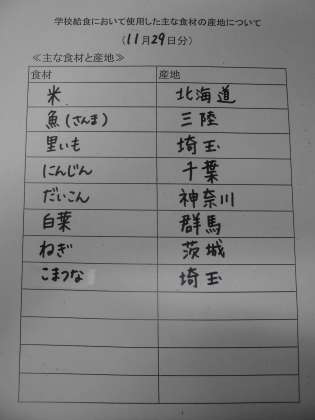 学校給食において使用した主な食材の産地について
(11月29日分)
≪主な食材と産地≫
食材 産地
米 北海道
魚(さんま) 三陸
里いも 埼玉
にんじん 千葉
だいこん 神奈川
白菜 群馬
ねぎ 茨城
こまつな 埼玉